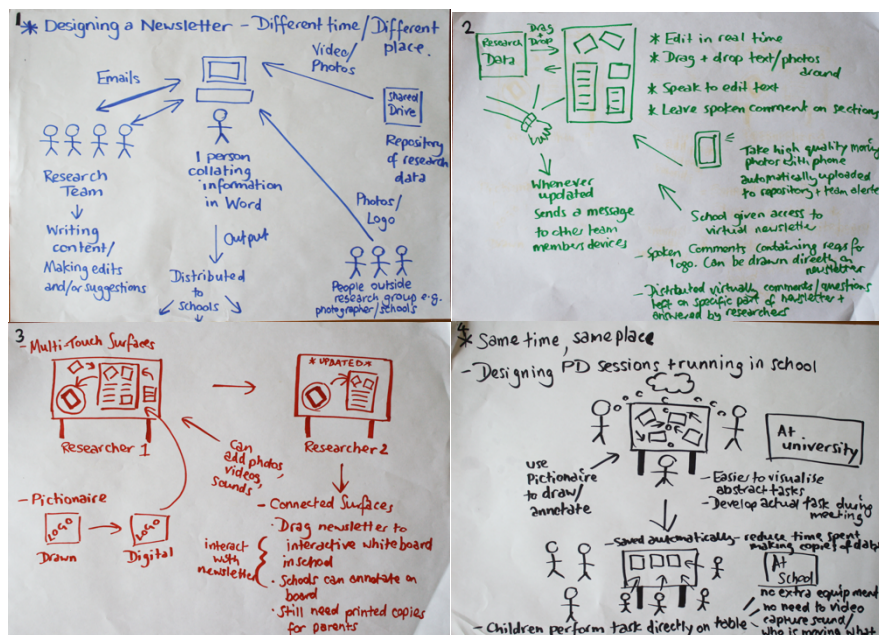 1 * Designing a Newsletter - Different time/Different place.
Emails
Video/
Photos
Shared
Drive
Repository
of research
data
Research
Team
Writing
content/
Making edits
and/or suggestions
1 person
collating
information
in Word
Output
Distributed
to
schools
Photos/
Logo
People outside
research group e.g.
photographer/schools
2
Research
Data
Drag
+
Drop
* Edit in real time
* Drag + drop text/photos
around
* Speak to edit text
* Leave spoken comment on sections
Whenever
updated
Sends a message
to other team
members devices
Take high quality moving
photos with phone
automatically uploaded
to repository + team
School given access to
virtual newsletter
- Spoken Comments containing reqs for
logo. Can be drawn directly on
newsletter
- Distributed virtually comments/questions
left on specific part of newsletter +
answered by researchers
3
- Multi-Touch Surfaces
Researcher 1
* UPDATED *
Researcher 2
Can
add photos,
videos,
sounds
- Pictionaire
LOGO
Drawn
LOGO
Digital
- Connected Surfaces
• Drag newsletter to
interactive whiteboard
in school
• Schools can annotate on
board
• Still need printed copies
for parents
interact
with
newsletter
4
* Same time, same place
- Designing PD sessions + running in school
At
university
use
Pictionaire
to draw/
annotate
- Easier to visualise
abstract tasks
- Develop actual task during
meeting
- Saved automatically - reduce time spent
making copies of
At
School
no extra equipment
no need to video
capture sound/
who is moving what
- Children perform task directly on table